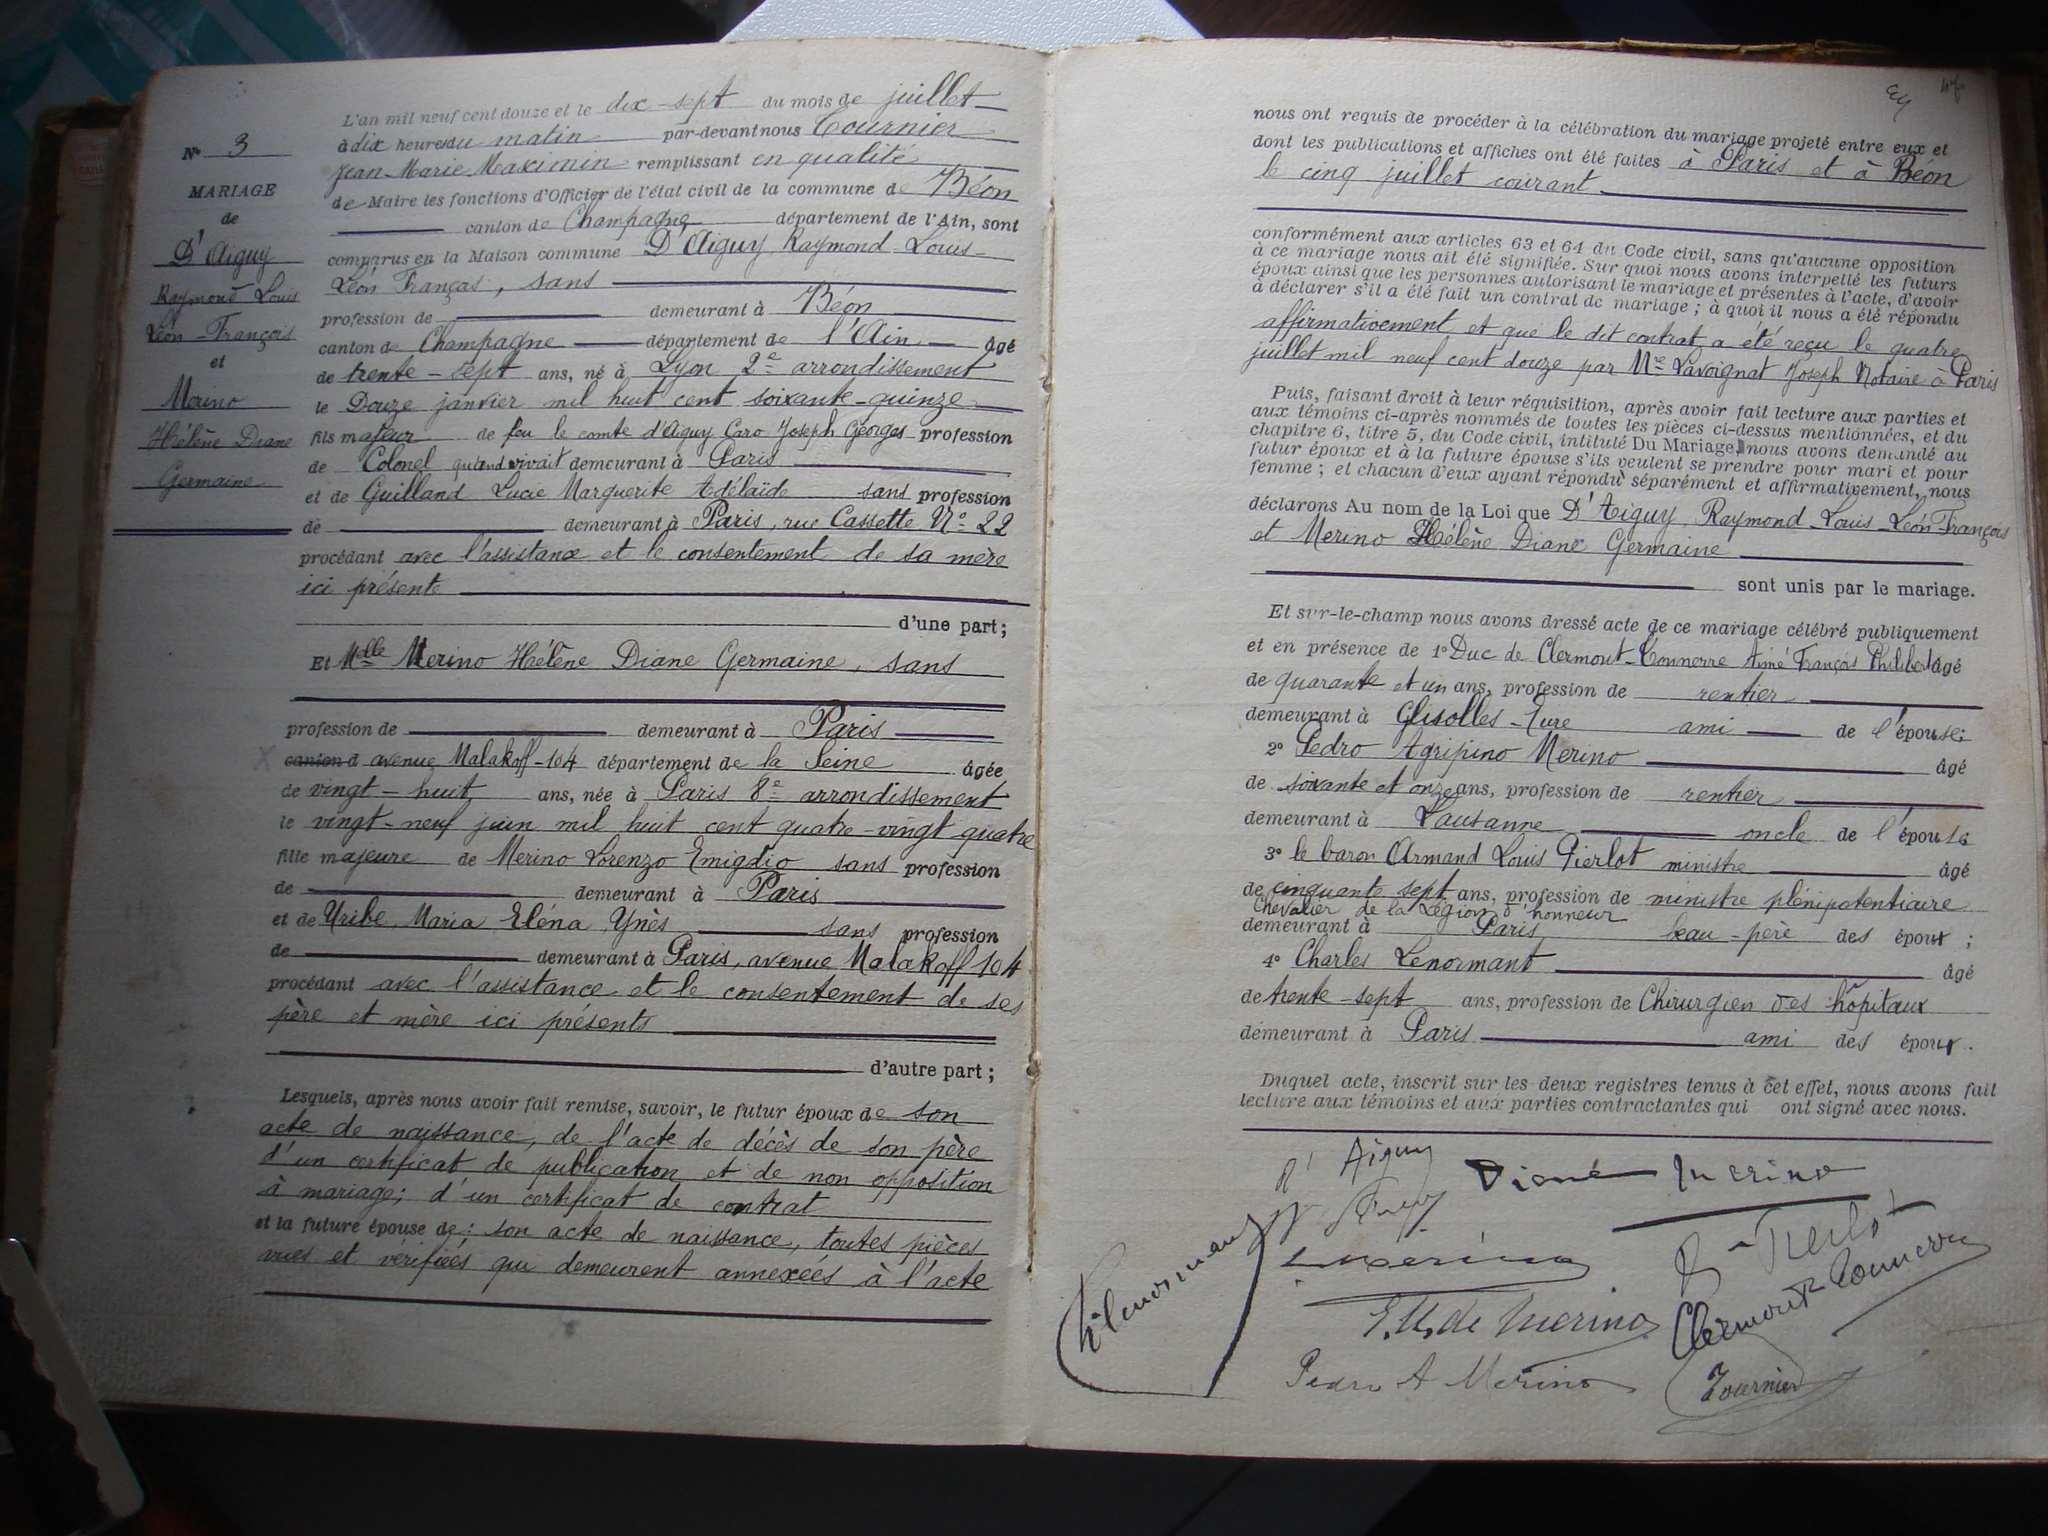 N° 3
MARIAGE
de
D'Aiguy
Raymond Louis
Léon-François
et
Merino
Hélène Diane
Germaine
L'an mil neuf cent douze et le dix-sept du mois de juillet
à dix heures du matin par-devant nous Tournier
Jean-Marie Maximin remplissant en qualité
de Maire les fonctions d'Officier de l'état civil de la commune de Béon
canton de Champagne département de l'Ain, sont
comparus en la Maison commune D'Aiguy Raymond Louis
Léon François, sans
profession de demeurant à Béon
canton de Champagne département de l'Ain âgé
de trente-sept ans, né à Lyon 2e arrondissement
le Douze janvier mil huit cent soixante-quinze
fils majeur de feu le comte d'Aiguy Caro Joseph Georges profession
de Colonel quand vivait demeurant à Paris
et de Guilland Lucie Marguerite Adélaïde sans profession
de demeurant à Paris, rue Cassette N° 22
procédant avec l'assistance et le consentement de sa mère
ici présente
d'une part;
Et Melle Merino Hélène Diane Germaine, sans
profession de demeurant à Paris
canton d avenue Malakoff-104 département de la Seine âgée
de vingt-huit ans, née à Paris 8e arrondissement
le vingt-neuf juin mil huit cent quatre-vingt quatre
fille majeure de Merino Lorenzo Emigdio sans profession
de demeurant à Paris
et de Uribe Maria Eléna Ynès sans profession
de demeurant à Paris, avenue Malakoff 104
procédant avec l'assistance et le consentement de ses
père et mère ici présents
d'autre part;
Lesquels, après nous avoir fait remise, savoir, le futur époux de son
acte de naissance, de l'acte de décès de son père
d'un certificat de publication et de non opposition
à mariage; d'un certificat de contrat
et la future épouse de: son acte de naissance, toutes pièces
vues et vérifiées qui demeurent annexées à l'acte
nous ont requis de procéder à la célébration du mariage projeté entre eux et
dont les publications et affiches ont été faites à Paris et à Béon
le cinq juillet courant
conformément aux articles 63 et 64 du Code civil, sans qu'aucune opposition
à ce mariage nous ait été signifiée. Sur quoi nous avons interpellé les futurs
époux ainsi que les personnes autorisant le mariage et présentes à l'acte, d'avoir
à déclarer s'il a été fait un contrat de mariage; à quoi il nous a été répondu
affirmativement et que le dit contrat a été reçu le quatre
juillet mil neuf cent douze par Me Lavoignat Joseph Notaire à Paris
Puis, faisant droit à leur réquisition, après avoir fait lecture aux parties et
aux témoins ci-après nommés de toutes les pièces ci-dessus mentionnées, et du
chapitre 6, titre 5, du Code civil, intitulé Du Mariage, nous avons demandé au
futur époux et à la future épouse s'ils veulent se prendre pour mari et pour
femme; et chacun d'eux ayant répondu séparément et affirmativement, nous
déclarons Au nom de la Loi que D'Aiguy Raymond Louis Léon François
et Merino Hélène Diane Germaine
sont unis par le mariage.
Et sur-le-champ nous avons dressé acte de ce mariage célébré publiquement
et en présence de 1° Duc de Clermont-Tonnerre Aimé François Philibert âgé
de quarante et un ans, profession de rentier
demeurant à Glisolles-Eure ami de l'épouse;
2° Pedro Agripino Merino âgé
de soixante et onze ans, profession de rentier
demeurant à Lausanne oncle de l'épouse
3° le baron Armand Louis Pierlot ministre âgé
de cinquante sept ans, profession de ministre plénipotentiaire
Chevalier de la Légion d'honneur
demeurant à Paris beau-père des époux;
4° Charles Lenormant âgé
de trente-sept ans, profession de Chirurgien des hôpitaux
demeurant à Paris ami des époux.
Duquel acte, inscrit sur les deux registres tenus à cet effet, nous avons fait
lecture aux témoins et aux parties contractantes qui ont signé avec nous.
d'Aiguy Diane Merino
Pierlot
Merino
Ch Lenormant
E. U. de Merino Clermont Tonnerre
Pedro A Merino Tournier